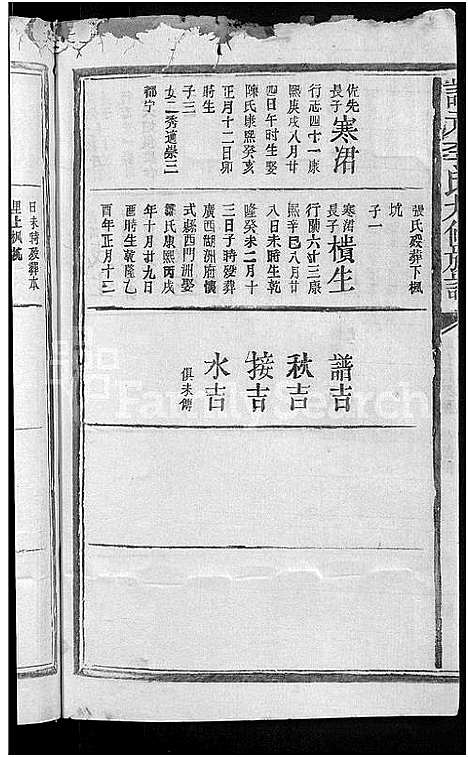 張氏歿葬下楓
坑
子一
佐先
長子
寒涒
行志四十一康
熙庚戌八月廿
四日午時生娶
陳氏康熙癸亥
正月十二日卯
時生
子三
女二秀適崇三
都寧
寒涒
長子
樍生
行蘭六廿三康
熙辛巳八月廿
八日未時生乾
隆癸未二月十
三日子時歿葬
廣西湖洲府懷
式縣西門洲娶
羅氏康熙丙戌
年十月廿九日
酉時生乾隆乙
酉年正月十二
譜吉
秋吉
接吉
水吉
俱未傳
日未時歿葬本
里上楓坑
FamilySearch